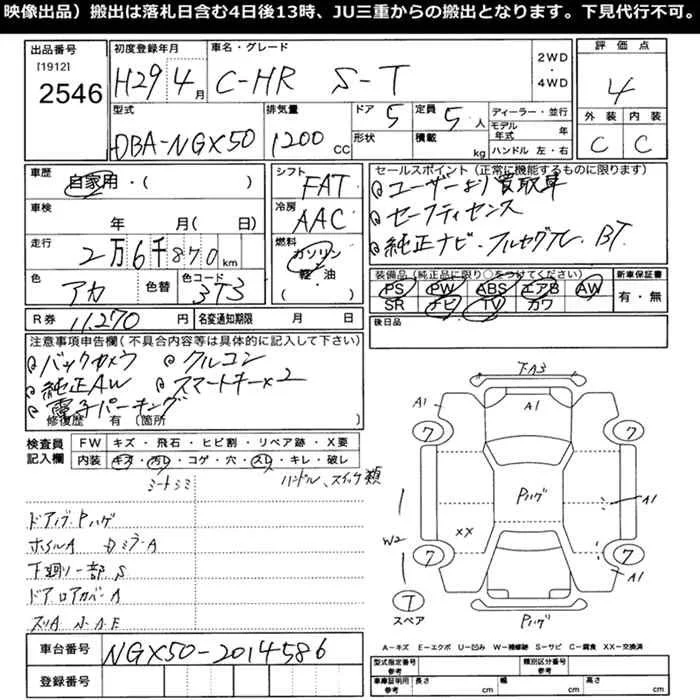 映像出品）搬出は落札日含む4日後13時、JU三重からの搬出となります。下見代行不可。
出品番号 [1912] 2546
初度登録年月 H29 4月
車名・グレード C-HR S-T
2WD ・ 4WD
評価点 4
外装 C 内装 C
型式 DBA-NGX50
排気量 1200 CC
ドア 5 形状
定員 5人 積載 kg
ディーラー・並行
モデル年式 年
ハンドル 左・右
車歴 自家用・( )
車検 年 月(日)
走行 2万6千870km
色 アカ 色替 色コード 3T3
R券 11,270円 名変通知期限 月 日
シフト FAT
冷房 AAC
燃料 ガソリン 軽・油
セールスポイント（正常に機能するものに限ります）
ユーザーより買取車
セーフティセンス
純正ナビ・フルセグTV. BT
装備品（純正品に限り○をつけてください） 新車保証書
PS PW ABS エアB AW 有・無
SR ナビ TV カワ
後日品
注意事項申告欄(不具合内容等は具体的に記入して下さい)
バックカメラ クルコン
純正AW スマートキー×2
電子パーキング
修復歴 有（箇所 ）
検査員記入欄
FW キズ・飛石・ヒビ割・リペア跡・X要
内装 キズ・汚レ・コゲ・穴・スレ・キレ・破レ
シートシミ ハンドル、スイッチ類
ドアノブ・Pハゲ
ホイルA ドミラーA
下廻り一部 S
ドアロアカバーA
スリA 小A.E
車台番号 NGX50-2014586
登録番号
A1
A1
7
7
Pハゲ
A1
XX
W2
7
7
A1
T
スペア
Pハゲ
A-キズ E-エクボ U-凹み W-補修跡 S-サビ C-腐食 XX-交換済
型式指定番号 参考 類別区分番号 参考
車庫証明用 参考 長さ cm 幅 cm 高さ cm